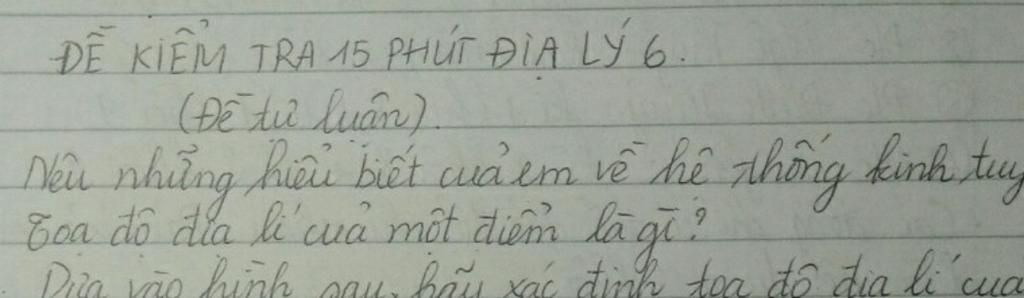 ĐỀ KIỂM TRA 15 PHÚT ĐỊA LÝ 6.
(Đề tự luận).
Nêu những hiểu biết của em về hệ thống kinh, tuy
Tọa độ địa lí của một điểm là gì?
Dựa vào hình sau, hãy xác định tọa độ địa lí của